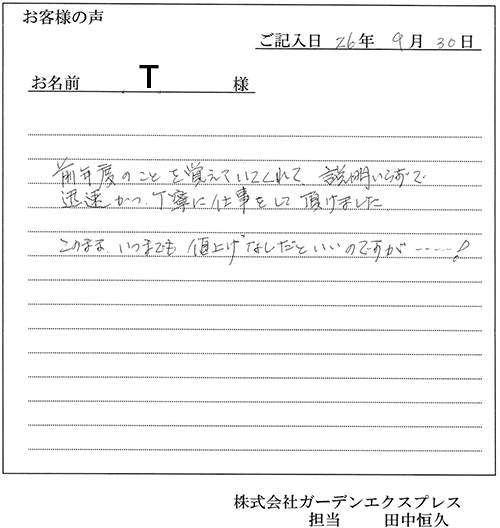 お客様の声
ご記入日 26年 9月 30日
お名前 T 様
前年度のことを覚えていてくれて、説明いらずで
迅速かつ、丁寧に仕事をして頂けました
このまま、いつまでも値上げなしだといいのですが-----!
株式会社ガーデンエクスプレス
担当 田中恒久